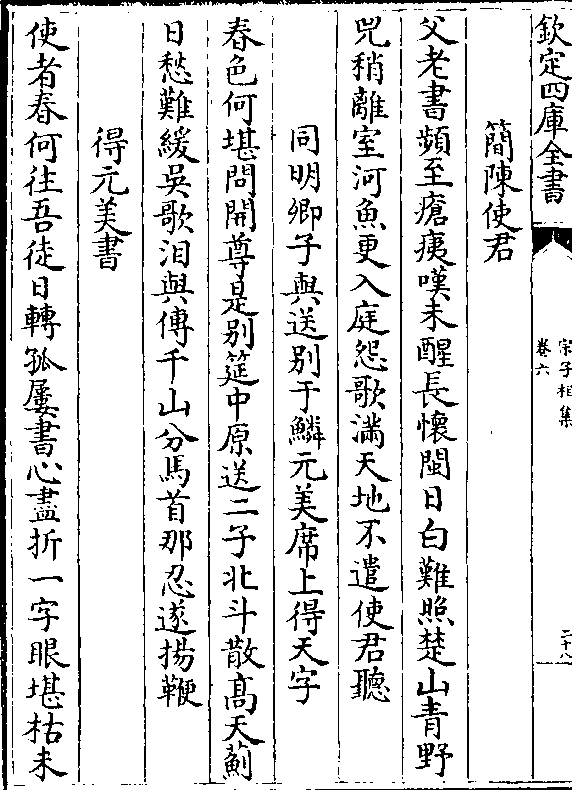 欽定四庫全書
宗子相集
卷六
二十八
簡陳使君
父老書頻至瘡痍嘆未醒長懷閩日白難照楚山青野
兕稍離室河魚更入庭怨歌滿天地不遣使君聽
同明卿子與送别于鱗元美席上得天字
春色何堪問開尊是别筵中原送二子北斗散髙天薊
日愁難緩吳歌泪與傳千山分馬首那忍遂揚鞭
得元美書
使者春何往吾徒日轉孤屢書心盡折一字眼堪枯未